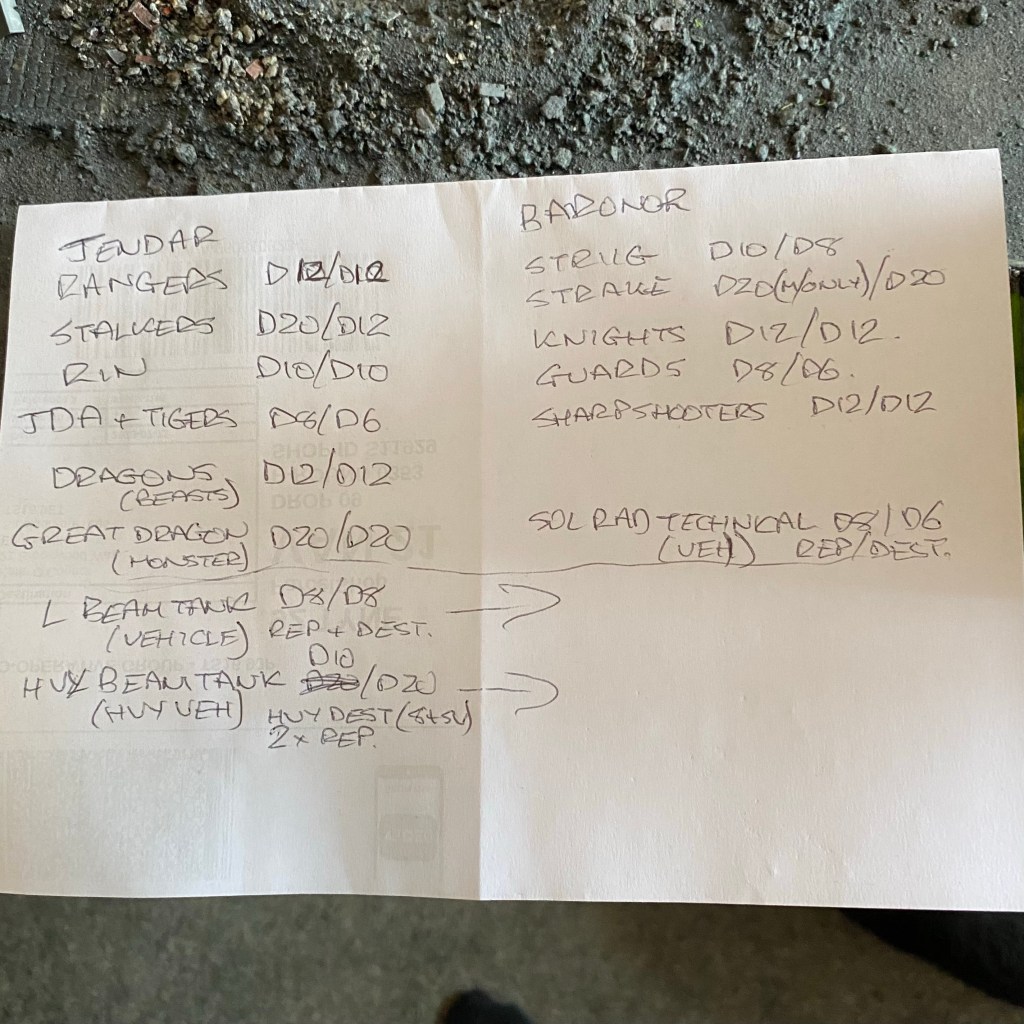 JENDAR
RANGERS D12/D12
STALKERS D20/D12
RIN D10/D10
JDA + TIGERS D8/D6
DRAGONS D12/D12
(BEASTS)
GREAT DRAGON D20/D20
(MONSTER)
L BEAM TANK D8/D8
(VEHICLE) REP + DEST.
D10
HVY BEAM TANK /D20
(HVY VEH) HVY DEST (8+SV)
2x REP.
BARONOR
D10/D8
D20(M/ONLY)/D20
KNIGHTS D12/D12.
GUARDS D8/D6.
SHARPSHOOTERS D12/D12
SOL RAD TECHNICAL D8/D6
(VEH) REP/DEST.